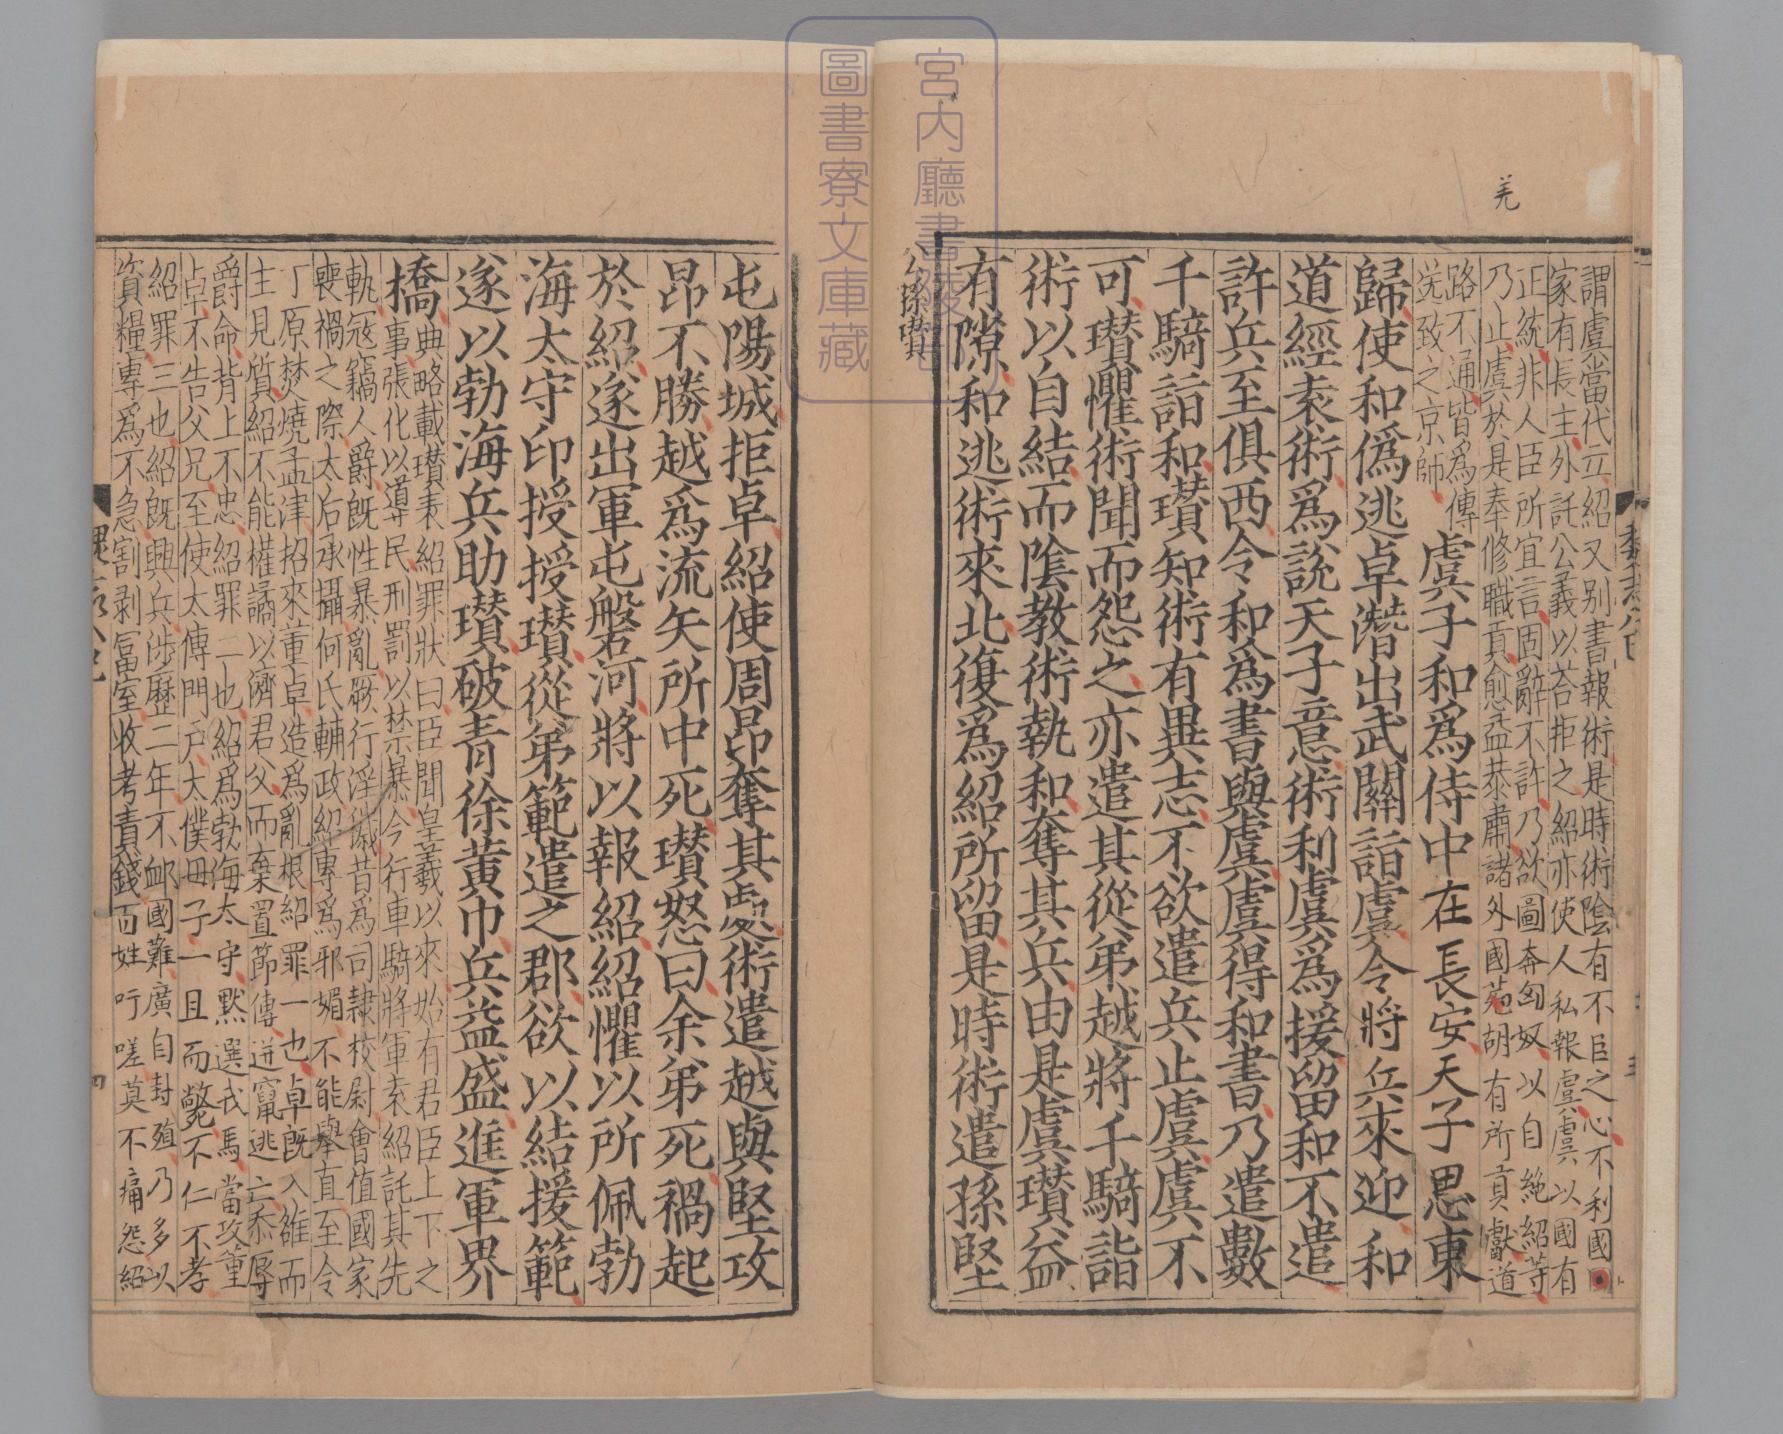 羌
謂虞當代立紹又别書報術是時術陰有不臣之心不利國
家有長主外託公義以荅拒之紹亦使人私報虞虞以國有
正統非人臣所宜言固辭不許乃欲圖奔匈奴以自絶紹等
乃止虞於是奉修職貢愈益恭肅諸外國羌胡有所貢獻道
路不通皆爲傳
送致之京師
虞子和爲侍中在長安天子思東
歸使和僞逃卓潛出武關詣虞令將兵來迎和
道經袁術爲說天子意術利虞爲援留和不遣
許兵至俱西令和爲書與虞虞得和書乃遣數
千騎詣和瓚知術有異志不欲遣兵止虞虞不
可瓚懼術聞而怨之亦遣其從弟越將千騎詣
術以自結而陰教術執和奪其兵由是虞瓚益
有隙和逃術來北復爲紹所留是時術遣孫堅
公孫瓚
屯陽城拒卓紹使周昂奪其處術遣越與堅攻
昂不勝越爲流矢所中死瓚怒曰余弟死禍起
於紹遂出軍屯磐河將以報紹紹懼以所佩勃
海太守印授授瓚從弟範遣之郡欲以結援範
遂以勃海兵助瓚破青徐黄巾兵益盛進軍界
橋
典略載瓚表紹罪狀曰臣聞皇羲以來始有君臣上下之
事張化以導民刑罰以禁暴今行車騎將軍袁紹託其先
軌冦竊人爵既性暴亂厥行淫穢昔爲司隷校尉會值國家
喪禍之際太后承攝何氏輔政紹專爲邪媚不能舉直至令
丁原焚燒孟津招來董卓造爲亂根紹罪一也卓既入雒而
主見質紹不能權譎以濟君父而棄置節傳迸竄逃亡忝辱
爵命背上不忠紹罪二也紹爲勃海太守默選戎馬當攻董
卓不告父兄至使太傅門戶太僕母子一旦而斃不仁不孝
紹罪三也紹既興兵涉歷二年不卹國難廣自封殖乃多以
資糧專爲不急割剥富室收考責錢百姓吁嗟莫不痛怨紹
宮内廳書陵部
圖書寮文庫藏